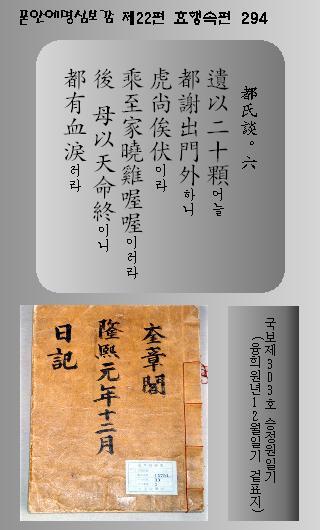 문안에명심보감 제22편 효행속편 294
都氏談。六
遺以二十顆어늘
都謝出門外하니
虎尙俟伏이라
乘至家曉雞喔喔이러라
後 母以天命終이니
都有血淚러라
奎章閣
隆熙元年十二月
日記
국보제303호 승정원일기
(융희원년12월일기 겉표지)